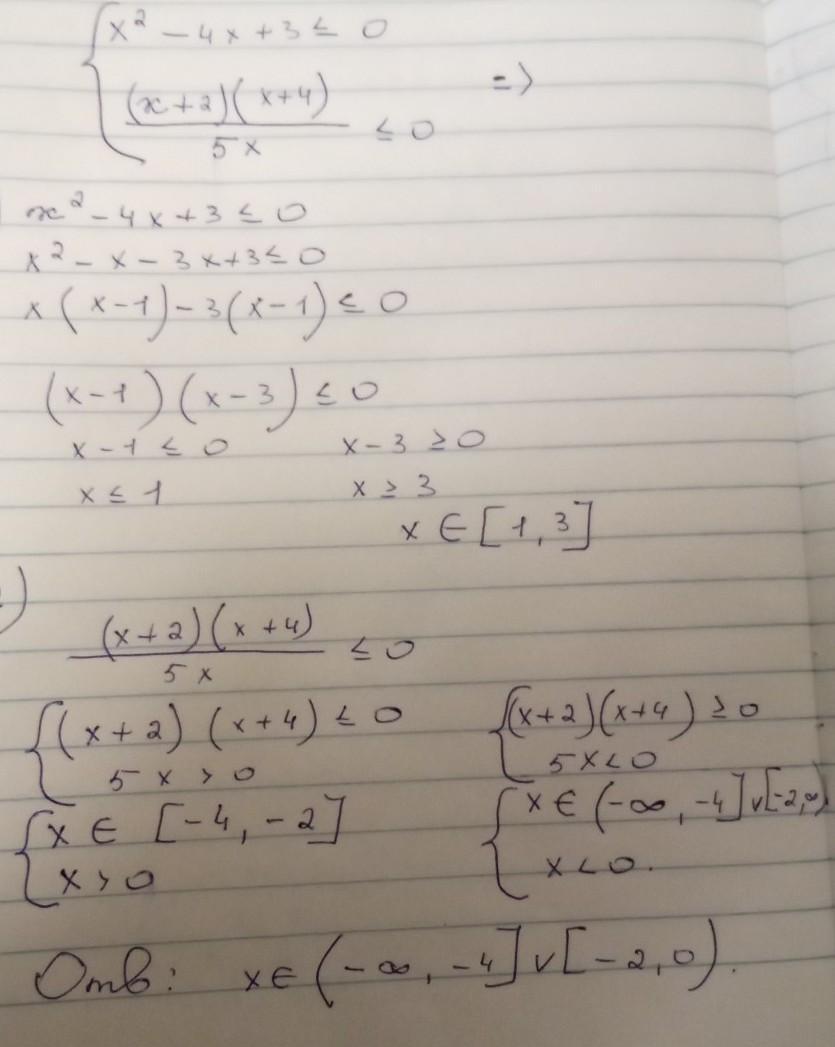 { x² - 4x + 3 ≤ 0
(x+2)(x+4) / 5x ≤ 0 =>
x² - 4x + 3 ≤ 0
x² - x - 3x + 3 ≤ 0
x(x-1) - 3(x-1) ≤ 0
(x-1)(x-3) ≤ 0
x - 1 ≤ 0 x - 3 ≥ 0
x ≤ 1 x ≥ 3
x ∈ [1, 3]
)
(x+2)(x+4) / 5x ≤ 0
{ (x+2)(x+4) ≤ 0 { (x+2)(x+4) ≥ 0
5x > 0 5x < 0
{ x ∈ [-4, -2] { x ∈ (-∞, -4] v [-2, ∞)
x > 0 x < 0.
Отв: x ∈ (-∞, -4] v [-2, 0).